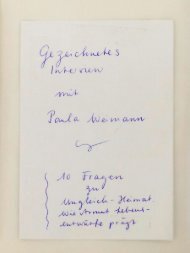 Gezeichnetes
Interview
mit
Paula Weimann
10 Fragen
zu
Ungleich-Heimat.
Wie Armut Lebens-
entwürfe prägt